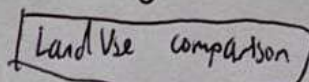 Land Use comparison